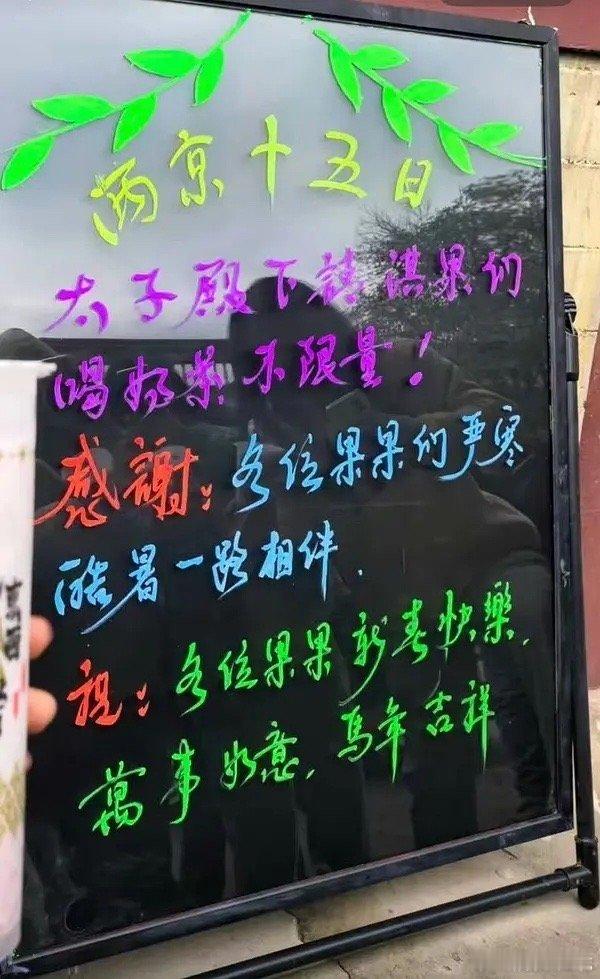 两京十五日
太子殿下请淇果们
喝奶茶不限量！
感謝：各位果果们严寒
酷暑一路相伴．
祝：各位果果新春快樂，
萬事如意，馬年吉祥